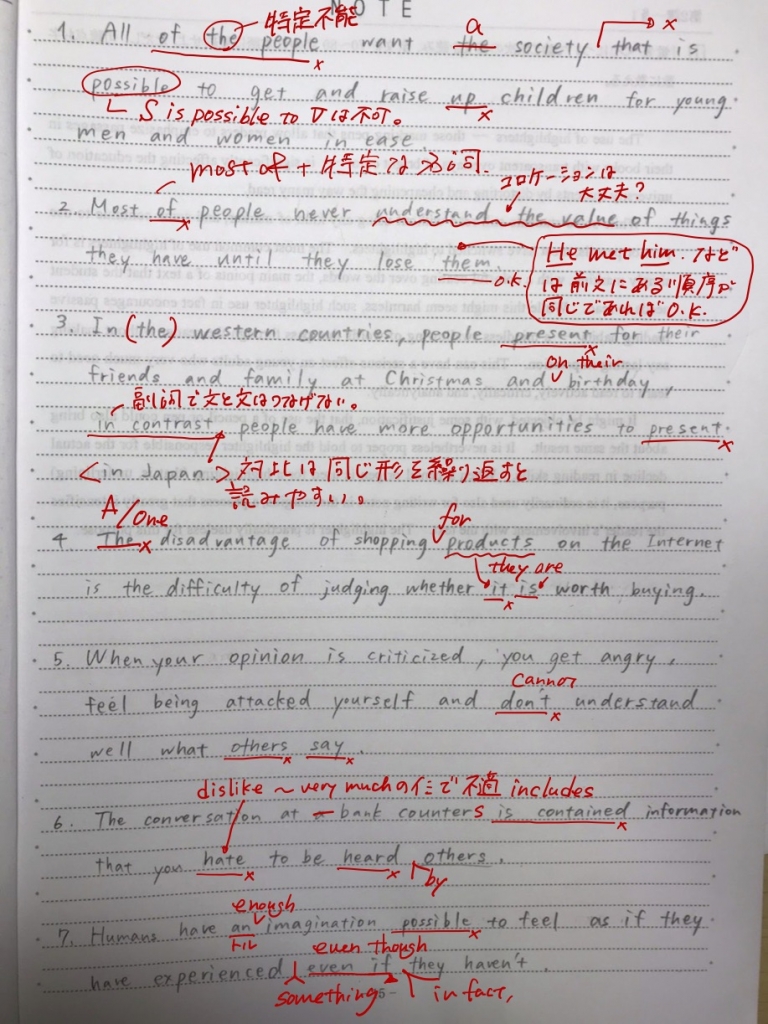 NOTE
特定不能
a
x
1. All of the people want the society that is
x
possible to get and raise up children for young
S is possible to Vは不可。
x
men and women in ease
most of + 特定は必須.
コロケーションは
大丈夫?
2. Most of people never understand the value of things
x
they have until they lose them.
O.K.
He met him. など
は前文にある順序が
同じであればO.K.
3. In (the) western countries, people present for their
x
on their
friends and family at Christmas and birthday,
副詞で文と文はつなげない。
in contrast people have more opportunities to present.
x
<in Japan> 対比は同じ形を繰り返すと
読みやすい。
A/one
for
4 The disadvantage of shopping products on the Internet
x
they are
is the difficulty of judging whether it is worth buying.
x
5. When your opinion is criticized, you get angry,
cannot
feel being attacked yourself and don't understand
x
well what others say.
x x
dislike ~ very muchの仕で不適 includes
6. The conversation at bank counters is contained information
x
that you hate to be heard others.
x x
by
enough
7. Humans have an imagination possible to feel as if they
トル
x
even though
have experienced even if they haven't.
something
in fact,